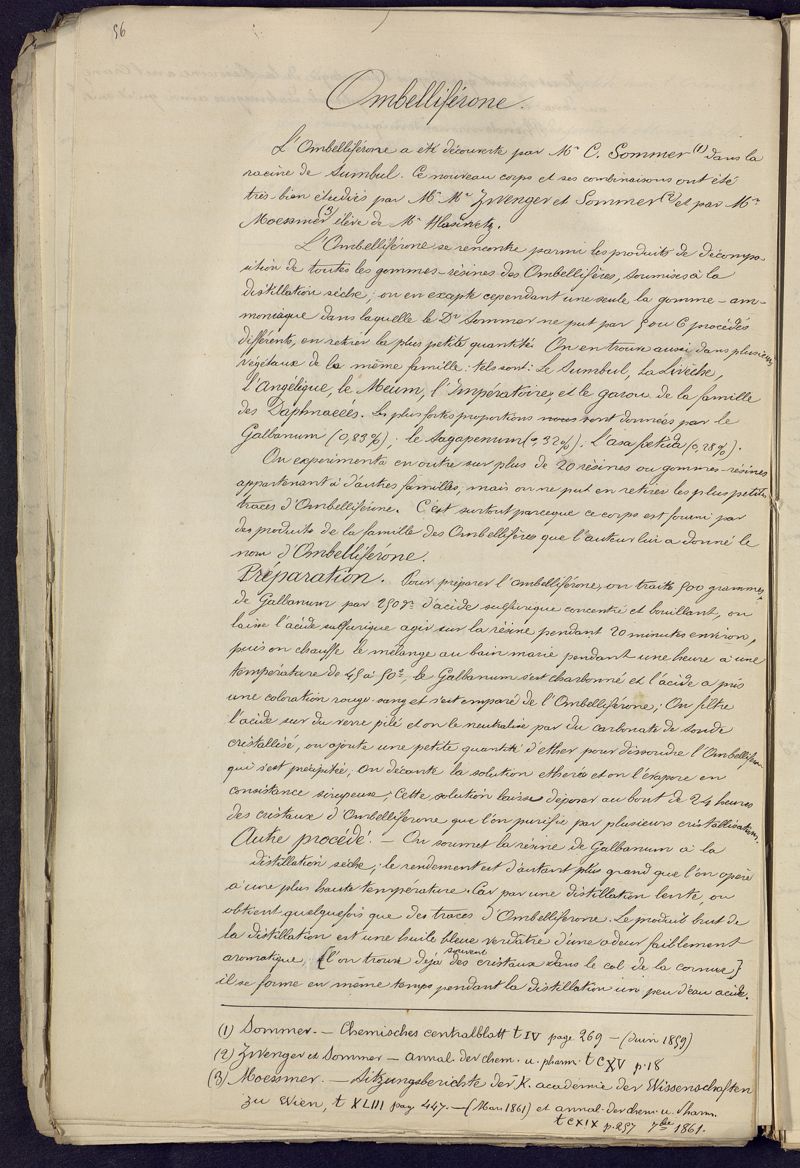 56
Ombelliférone.
L'Ombelliférone a été découverte par Mr C. Sommer (1) dans la
racine de Sumbul. Ce nouveau corps et ses combinaisons ont été
très-bien étudiés par Mr Mr Zwenger et Sommer (2) et par Mr
Moessmer (3) élève de Mr Hlasiwetz.
L'Ombelliférone se rencontre parmi les produits de décompo-
sition de toutes les gommes-résines des Ombellifères, soumises à la
distillation sèche; on en excepte cependant une seule la gomme-am-
moniaque dans laquelle le Dr Sommer ne put par 5 ou 6 procédés
différents, en retirer la plus petite quantité. On en trouve aussi dans plusieurs
végétaux de la même famille: tels sont: Le Sumbul, La Livèche,
l'Angélique, le Meum, l'Impératoire, et le garou de la famille
des Daphnacées. Les plus fortes proportions nous sont données par le
Galbanum (0,83%); le Sagapenum (0,32%). L'asa foetida (0,28%).
On expérimenta en outre sur plus de 20 résines ou gommes-résines
appartenant à d'autres familles, mais on ne put en retirer les plus petites
traces d'Ombelliférone. C'est surtout parceque ce corps est fourni par
des produits de la famille des Ombellifères que l'auteur lui a donné le
nom d'Ombelliférone.
Préparation. Pour préparer l'ombelliférone, on traite 500 grammes
de Galbanum par 250gr d'acide sulfurique concentré et bouillant, on
laisse l'acide sulfurique agir sur la résine pendant 20 minutes environ,
puis on chauffe le mélange au bain marie pendant une heure à une
température de 45 à 50°, le Galbanum s'est charbonné et l'acide a pris
une coloration rouge-sang et s'est emparé de l'Ombelliférone; On filtre
l'acide sur du verre pilé et on le neutralise par du carbonate de soude
cristallisé, on ajoute une petite quantité d'éther pour dissoudre l'Ombelliférone
qui s'est précipitée, on décante la solution etherée et on l'évapore en
consistance sirupeuse; Cette solution laisse déposer au bout de 24 heures
des cristaux d'Ombelliferone que l'on purifie par plusieurs cristallisations.
Autre procédé. - On soumet la résine de Galbanum à la
distillation sèche; le rendement est d'autant plus grand que l'on opère
à une plus haute température. Car par une distillation lente, on
obtient quelquefois que des traces d'Ombelliferone. Le produit brut de
la distillation est une huile bleue verdâtre d'une odeur faiblement
aromatique (l'on trouve déjà souvent des cristaux dans le col de la cornue)
il se forme en même temps pendant la distillation un peu d'eau acide.
(1) Sommer. - Chemisches centralblatt t IV page 269 - (Juin 1859)
(2) Zwenger et Sommer - annal. der chem. u. pharm. t CXV p. 18
(3) Moessmer. - Sitzungsberichte der K. academie der Wissenschaften
zu Wien, t XLIII pag 447. - (Mars 1861) et annal. der chem. u. Pharm.
t CXIX p. 257 7bre 1861.